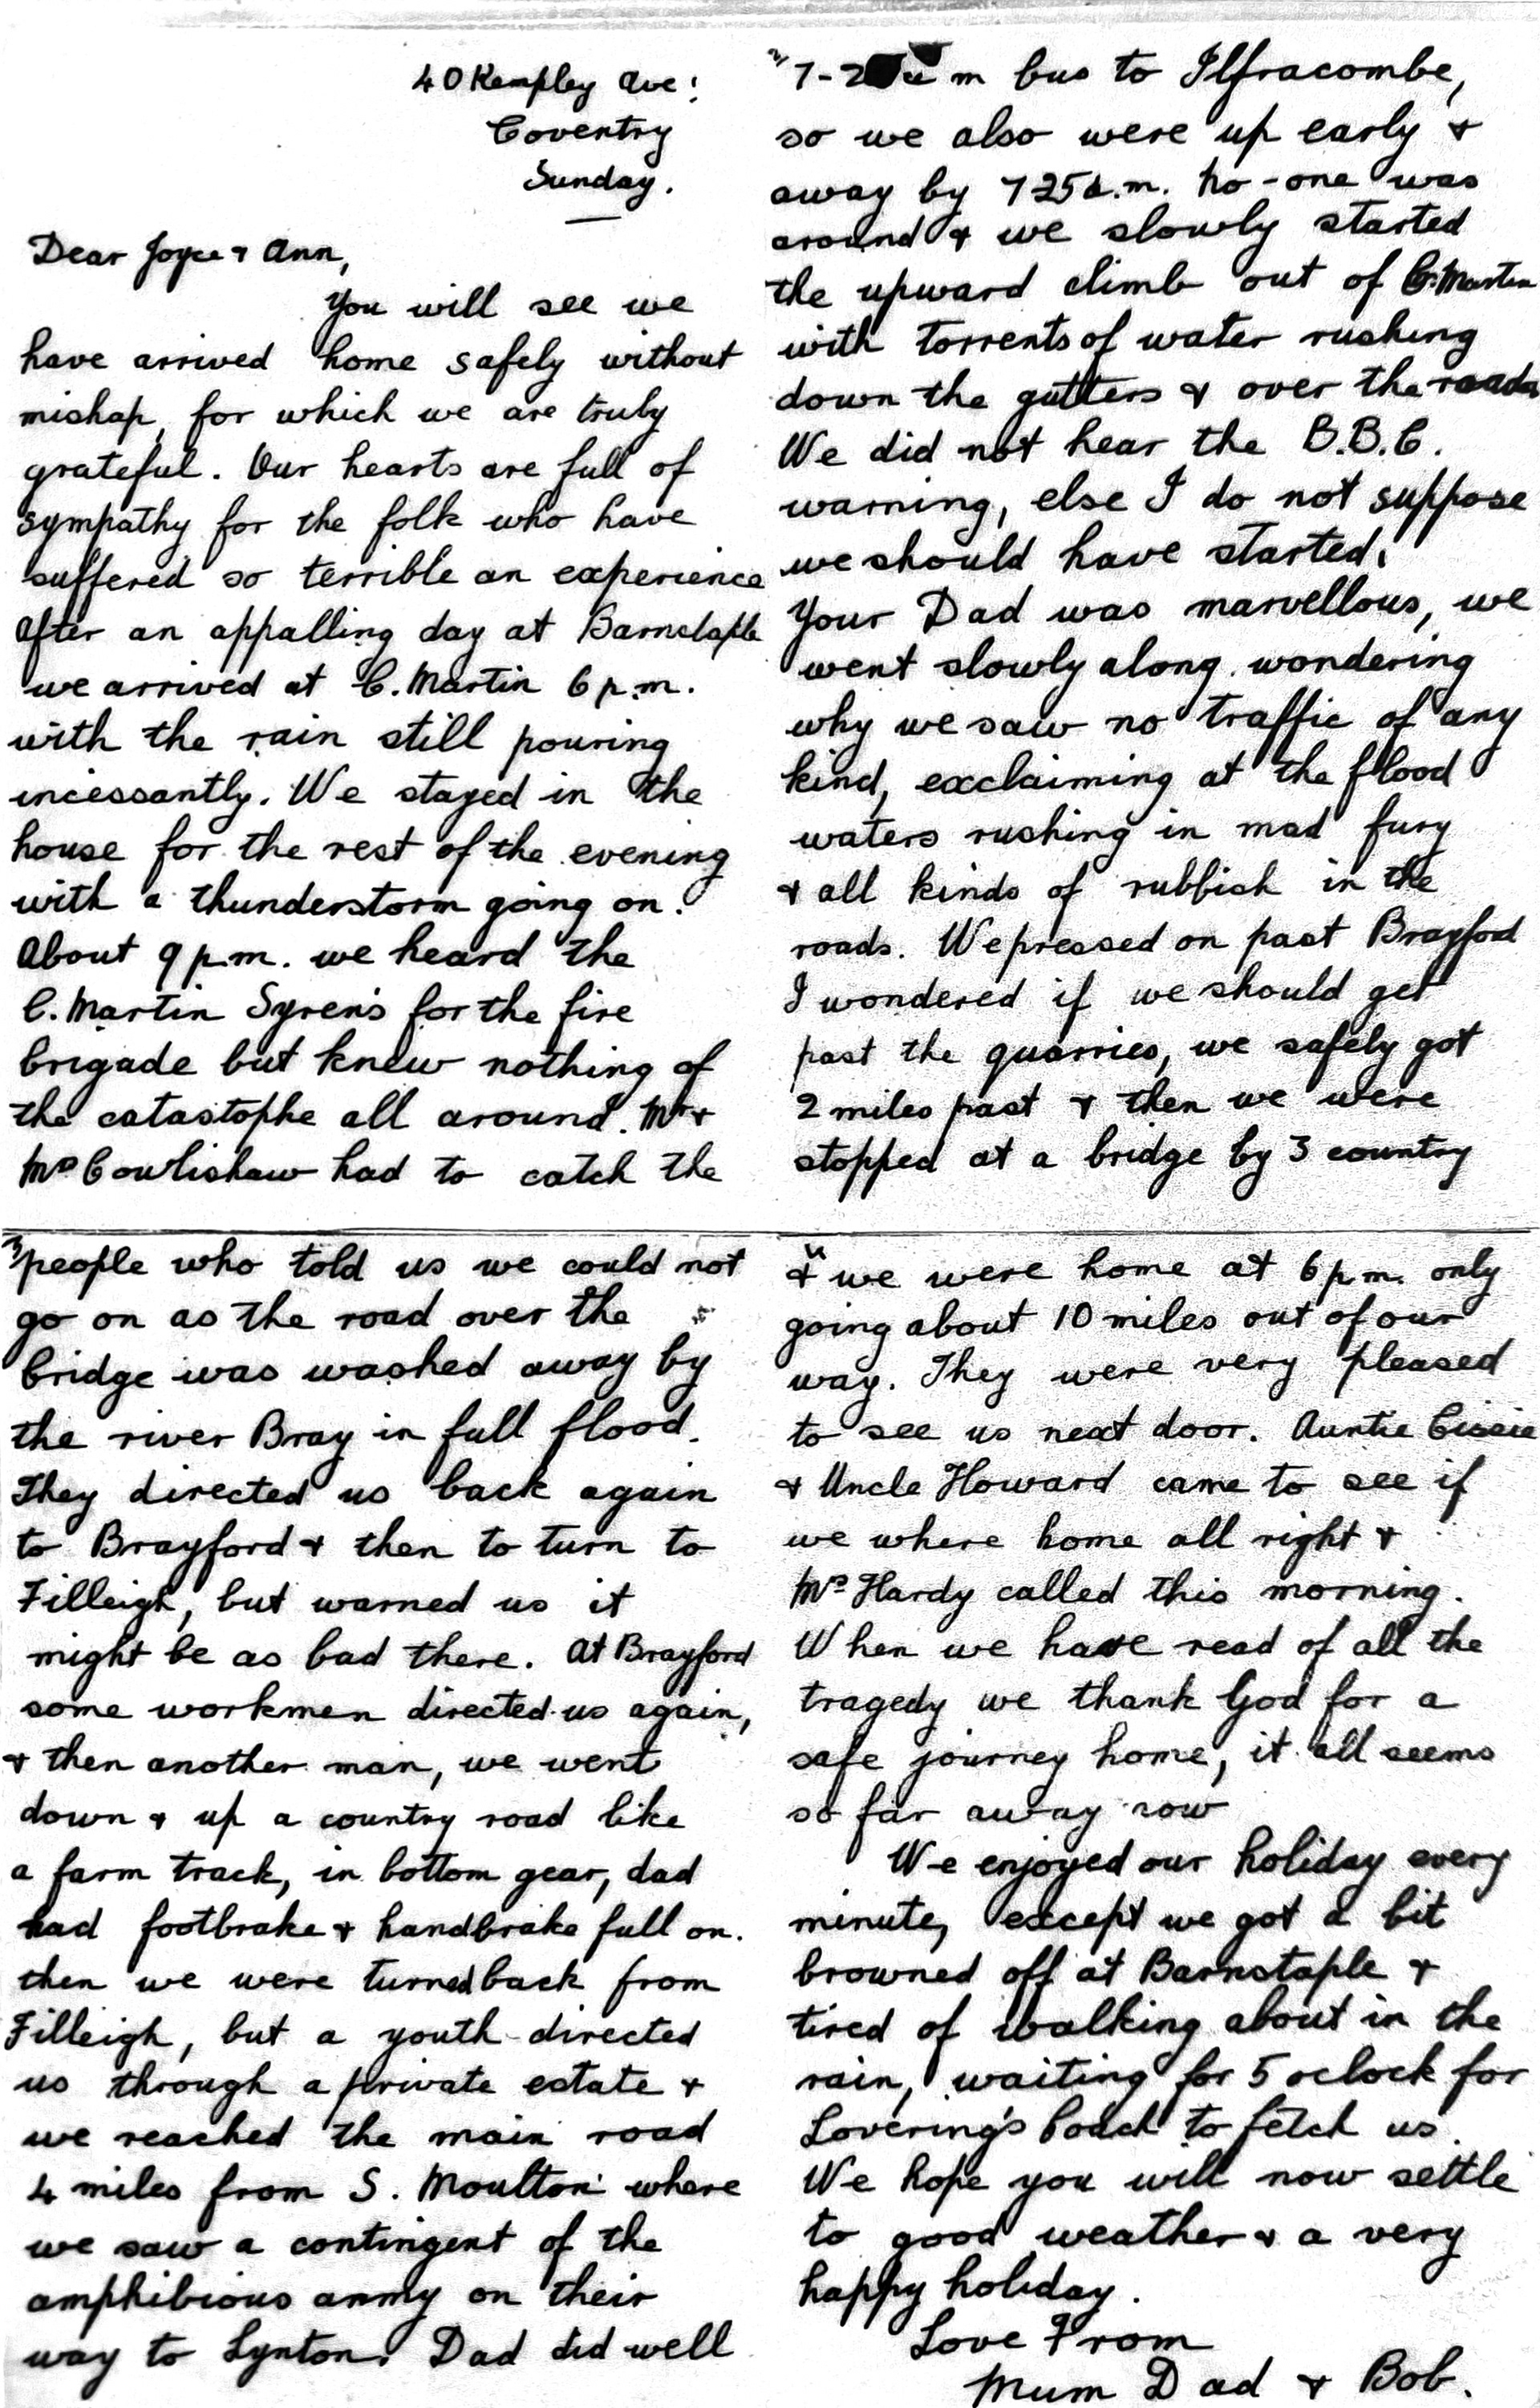 40 Kempley Ave:
Coventry
Sunday.
Dear Joyce & Ann,
You will see we
have arrived home safely without
mishap, for which we are truly
grateful. Our hearts are full of
sympathy for the folk who have
suffered so terrible an experience
After an appalling day at Barnstaple
we arrived at C. Martin 6 p.m.
with the rain still pouring
incessantly. We stayed in the
house for the rest of the evening
with a thunderstorm going on.
About 9 p.m. we heard the
C. Martin Syrens for the fire
brigade but knew nothing of
the catastophe all around. Mr &
Mrs Cowlishaw had to catch the
2
7-2 m bus to Ilfracombe,
so we also were up early &
away by 7 25 a.m. No-one was
around & we slowly started
the upward climb out of C. Martin
with torrents of water rushing
down the gutters & over the roads
We did not hear the B.B.C.
warning, else I do not suppose
we should have started.
Your Dad was marvellous, we
went slowly along wondering
why we saw no traffic of any
kind, exclaiming at the flood
waters rushing in mad fury
& all kinds of rubbish in the
roads. We pressed on past Brayford
I wondered if we should get
past the quarries, we safely got
2 miles past & then we were
stopped at a bridge by 3 country
3
people who told us we could not
go on as the road over the
bridge was washed away by
the river Bray in full flood.
They directed us back again
to Brayford & then to turn to
Filleigh, but warned us it
might be as bad there. At Brayford
some workmen directed us again,
& then another man, we went
down & up a country road like
a farm track, in bottom gear, dad
had footbrake & handbrake full on.
then we were turned back from
Filleigh, but a youth directed
us through a private estate &
we reached the main road
4 miles from S. Moulton where
we saw a contingent of the
amphibious army on their
way to Lynton. Dad did well
4
& we were home at 6 p.m. only
going about 10 miles out of our
way. They were very pleased
to see us next door. Auntie Cissie
& Uncle Howard came to see if
we where home all right &
Mrs Hardy called this morning.
When we have read of all the
tragedy we thank God for a
safe journey home, it all seems
so far away now
We enjoyed our holiday every
minute, except we got a bit
browned off at Barnstaple &
tired of walking about in the
rain, waiting for 5 oclock for
Lovering's Coach to fetch us.
We hope you will now settle
to good weather & a very
happy holiday.
Love From
Mum Dad & Bob.